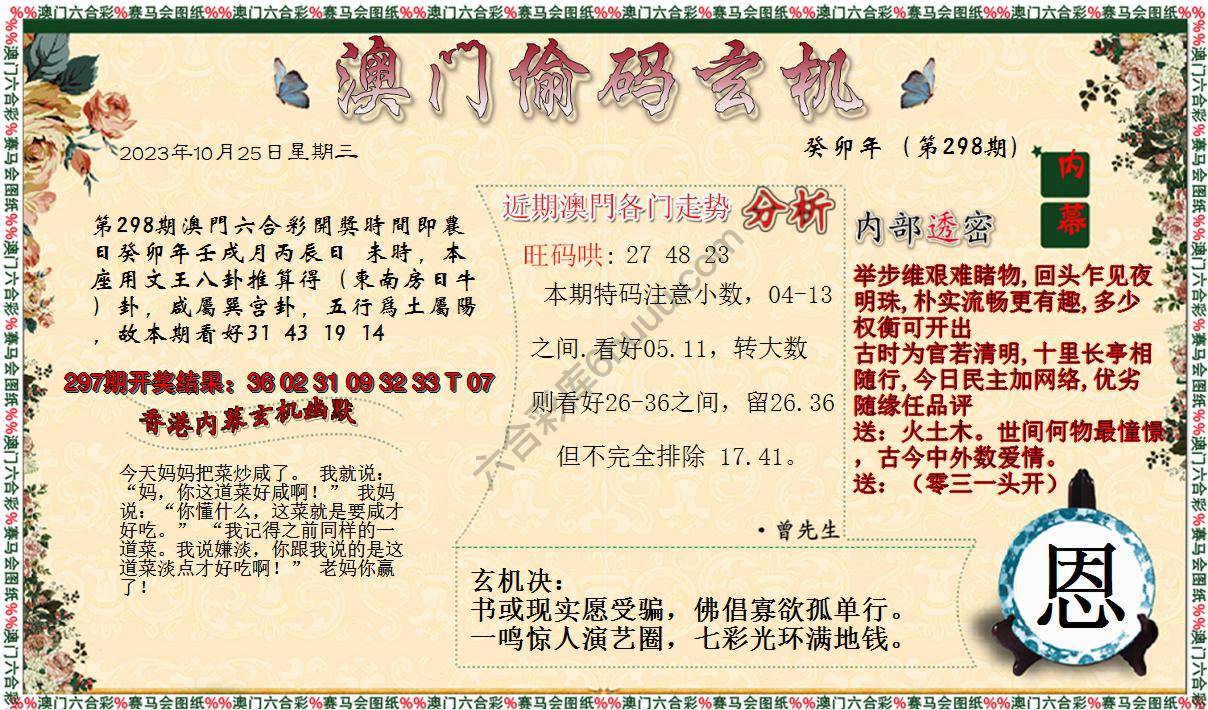 %%澳门六合彩%赛马会图纸%%澳门六合彩%赛马会图纸%%澳门六合彩%赛马会图纸%%澳门六合彩%赛马会图纸%%澳门六合彩%赛马会图纸%%澳门六合彩%赛马会图纸%%
澳门偷码玄机
2023年10月25日星期三
癸卯年（第298期）
内
幕
第298期澳門六合彩開獎時間即農
日癸卯年壬戌月丙辰日 未時，本
座用文王八卦推算得（東南房日牛
）卦，咸屬巽宫卦，五行爲土屬陽
，故本期看好31 43 19 14
297期开奖结果：36 02 31 09 32 33 T 07
香港内幕玄机幽默
今天妈妈把菜炒咸了。 我就说：
“妈，你这道菜好咸啊！” 我妈
说：“你懂什么，这菜就是要咸才
好吃。” “我记得之前同样的一
道菜。我说嫌淡，你跟我说的是这
道菜淡点才好吃啊！” 老妈你赢
了！
近期澳門各门走势 分析
旺码哄: 27 48 23
本期特码注意小数，04-13
之间.看好05.11，转大数
则看好26-36之间，留26.36
但不完全排除 17.41。
·曾先生
内部透密
举步维艰难睹物,回头乍见夜
明珠,朴实流畅更有趣,多少
权衡可开出
古时为官若清明,十里长亭相
随行,今日民主加网络,优劣
随缘任品评
送：火土木。世间何物最憧憬
，古今中外数爱情。
送：（零三一头开）
玄机决：
书或现实愿受骗，佛倡寡欲孤单行。
一鸣惊人演艺圈，七彩光环满地钱。
恩
%%澳门六合彩%赛马会图纸%%澳门六合彩%赛马会图纸%%澳门六合彩%赛马会图纸%%澳门六合彩%赛马会图纸%%澳门六合彩%赛马会图纸%%澳门六合彩%赛马会图纸%%